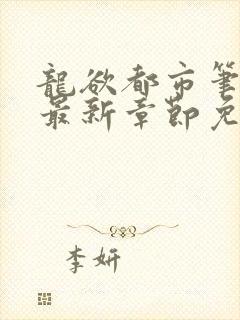 龍欲都市筆
最新章節免
李妍